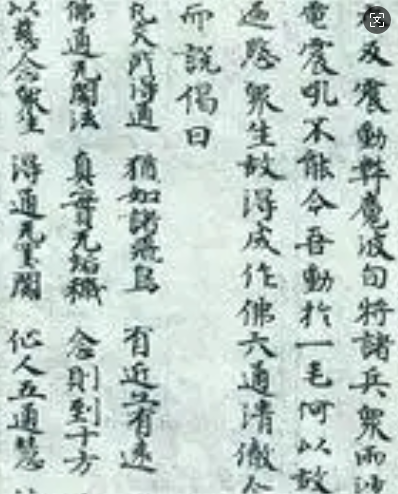 及震動弊魔波旬將諸兵衆雨沙
電震吼不能令吾動於一毛何以故
愍衆生故得成作佛六通清徹
而說偈曰
凡夫所得通 猶如諸飛鳥 有近亦有遠
佛通无閡法 真實无垢穢 念則到十方
以慈念衆生 得通无罣閡 仙人五通慧